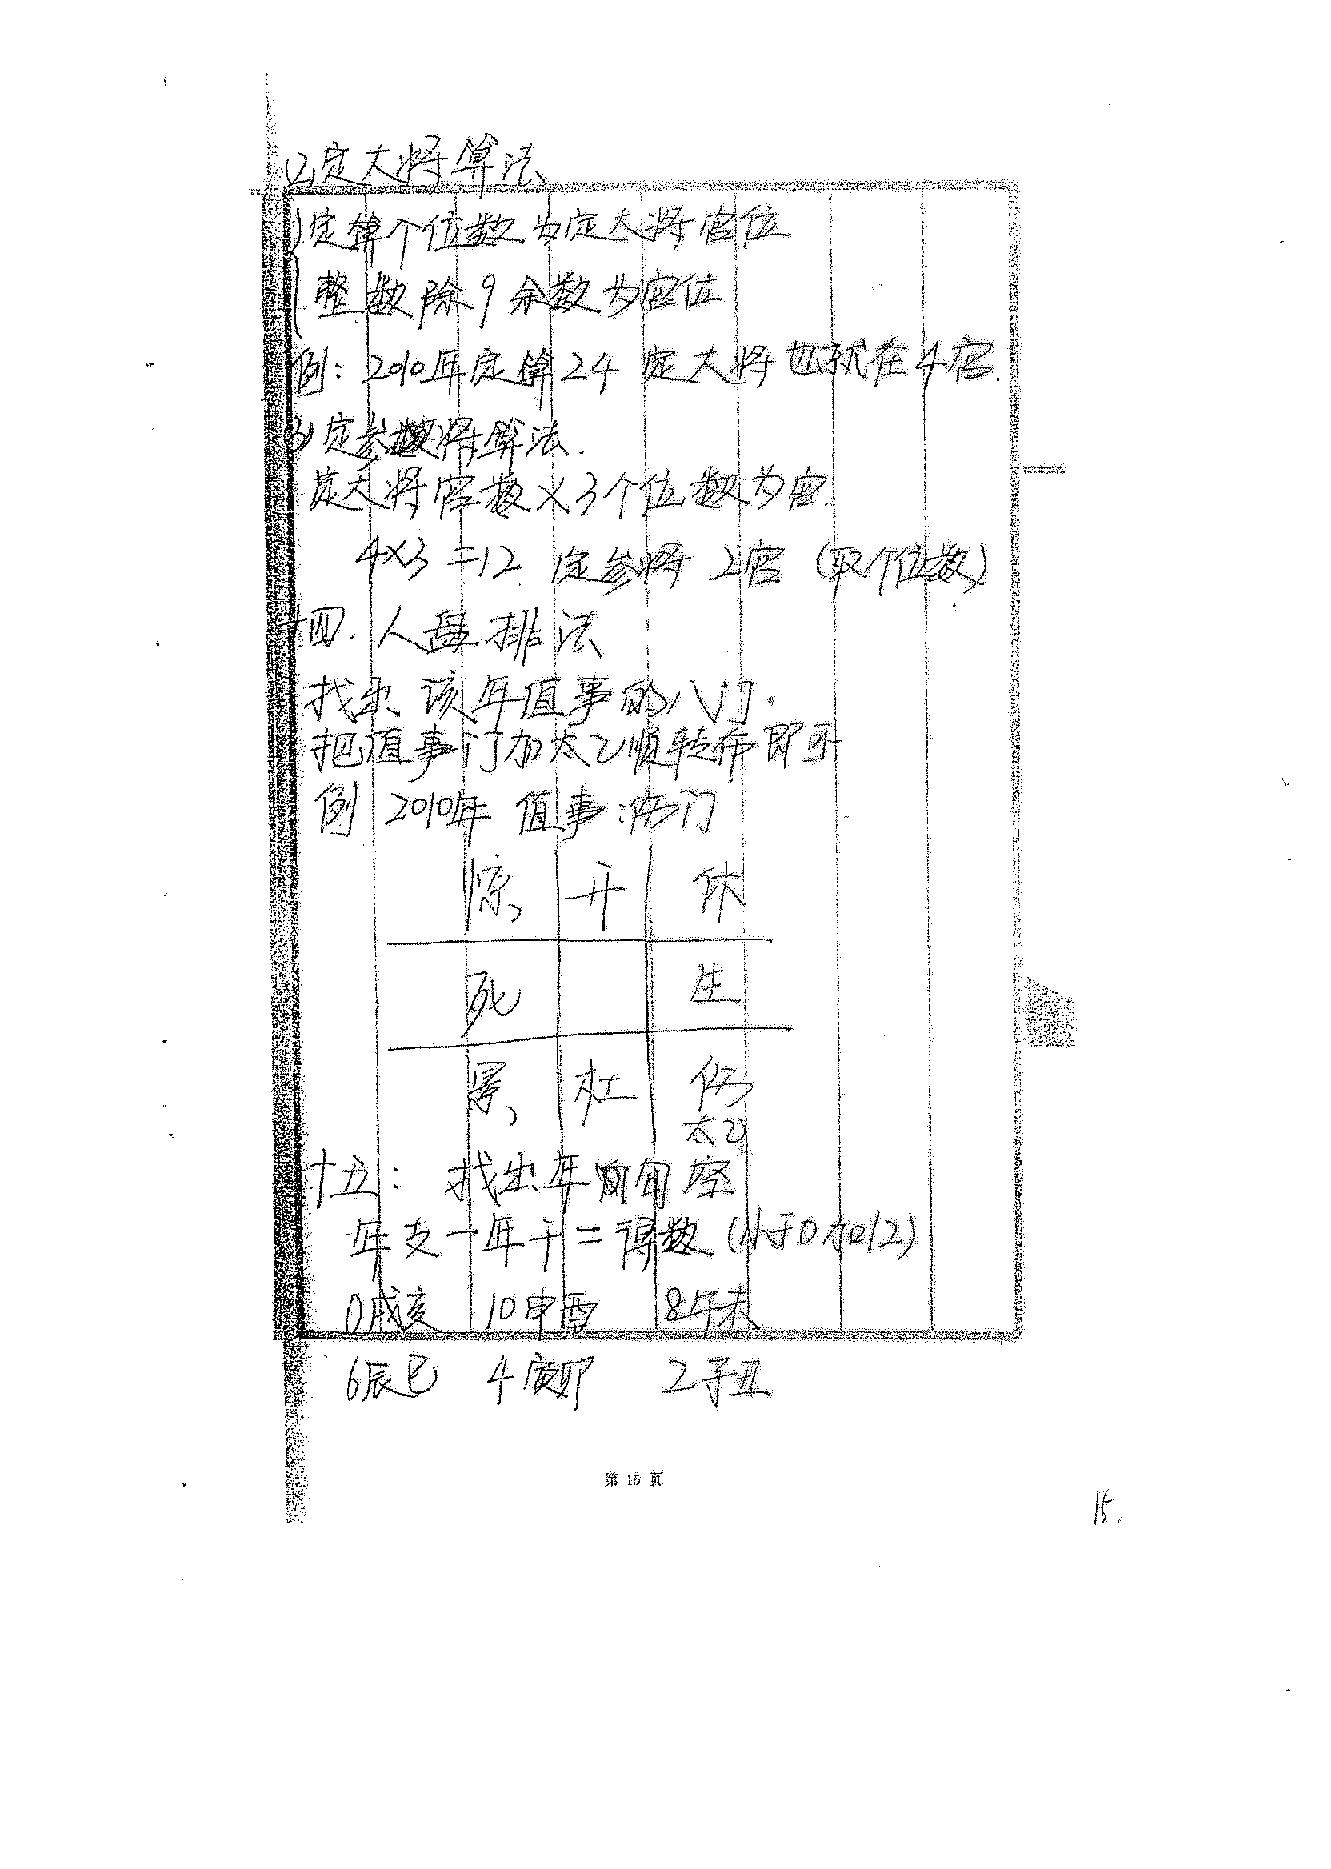 (2)定大将算法
定算个位数为定大将宫位
整数除9余数为宫位
例:2010年定算24 定大将也就在4宫.
(3)定参将算法.
定大将宫数×3个位数为宫.
4×3=12. 定参将 2宫 (取个位数)
十四. 人盘排法
找出该年值事的八门.
把值事门加太乙顺转布即可
例 2010年 值事:伤门
惊 开 休
死 生
景 杜 伤
太乙
十五: 找出年旬空
年支-年干=得数(小于0加12)
0戌亥 10申酉 8午未
6辰巳 4寅卯 2子丑
第 15 页
15.